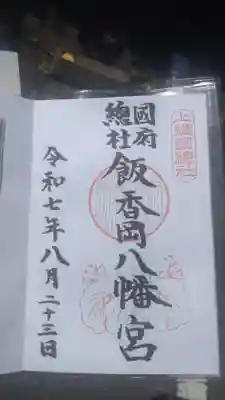 上總國總社
國府
總社
飯香岡八幡宮
令和七年八月二十三日